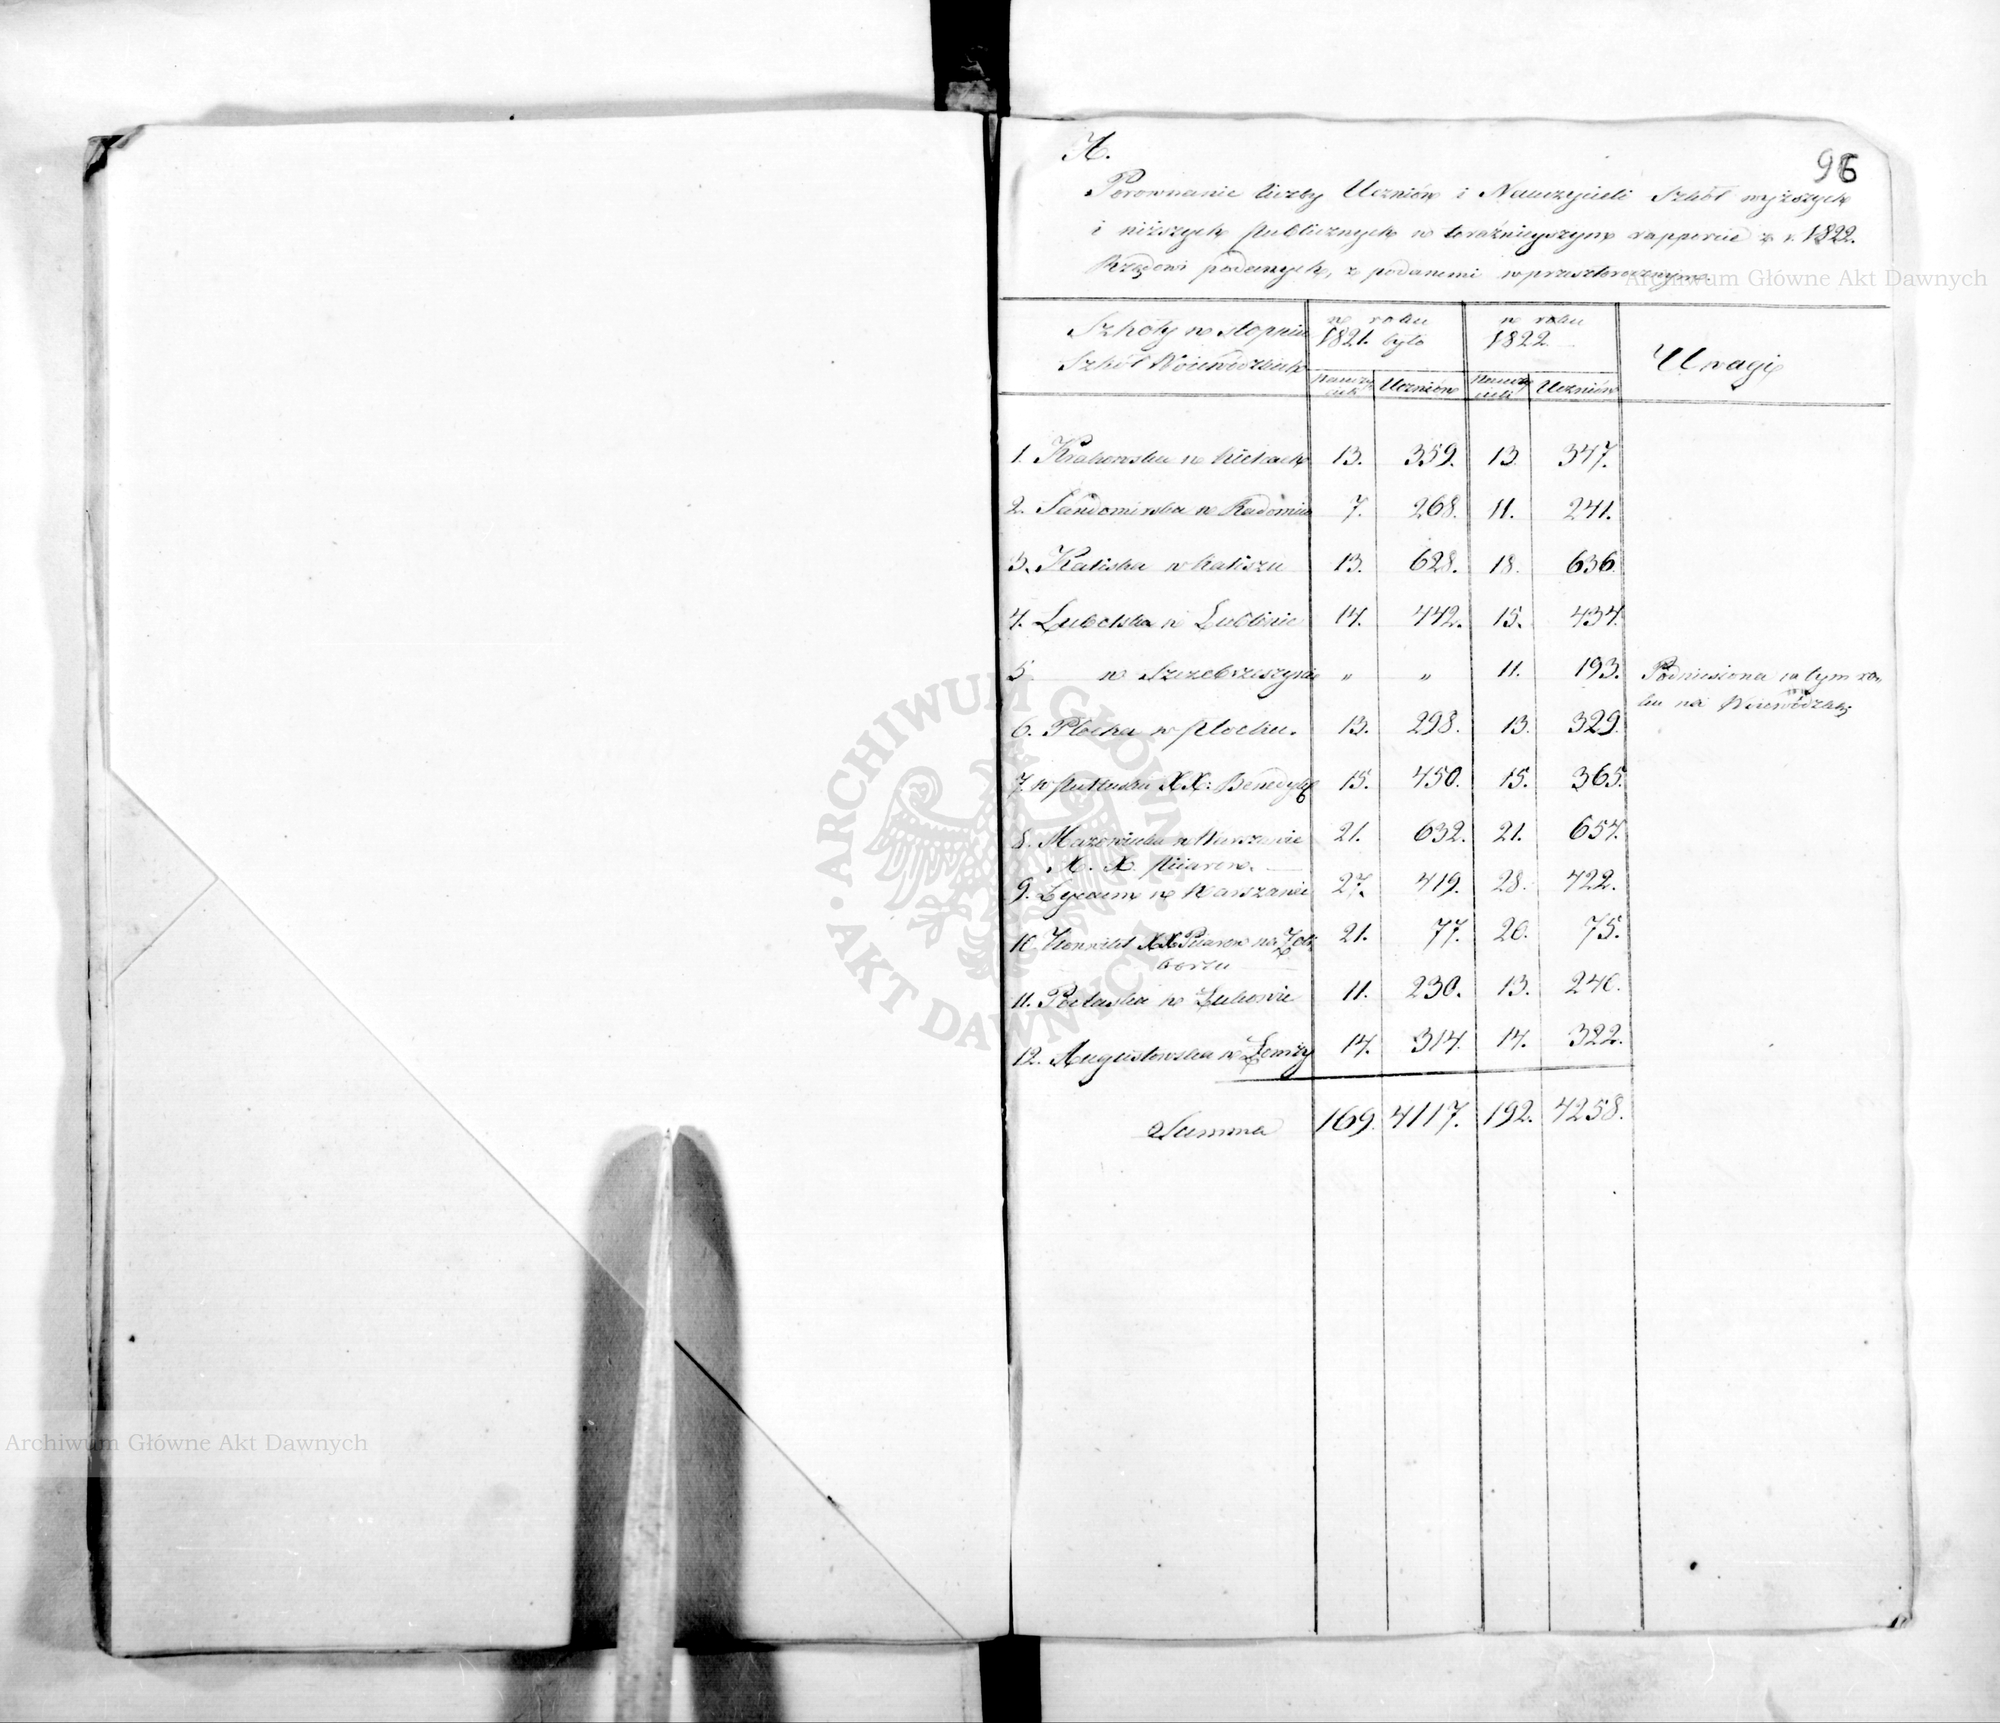 A.
96
Porownanie liczby Uczniów i Nauczycieli Szkół wyższych
i niższych publicznych w teraźnieyszym rapporcie z r. 1822.
Rządowi podanych, z podanemi w przeszłorocznym.
Archiwum Główne Akt Dawnych
Szkoły w stopniu Szkół Woiewódzkich | w roku 1821. było | w roku 1822 | Uwagi
Nauczycieli | Uczniów | Nauczycieli | Uczniów
1. Krakowska w Kielcach 13. 359. 13. 347.
2. Sandomirska w Radomiu 7. 268. 11. 241.
3. Kaliska w Kaliszu 13. 628. 18. 636.
4. Lubelska w Lublinie 14. 442. 15. 434.
5 w Szczebrzeszynie " " 11. 193. Podniesiona w tym ro-
ku na Woiewódzką
6. Płocka w Płocku. 13. 298. 13. 329.
7. w Pułtusku XX: Benedykt 15. 450. 15. 365.
8. Mazowiecka w Warszawie 21. 632. 21. 654.
X. X. Piiarow.
9. Lyceum w Warszawie 27. 419. 28. 422.
10 Konwikt XX Piiarow na Żoli 21. 77. 20. 75.
borzu
11. Podlaska w Łukowie 11. 230. 13. 240.
12. Augustowska w Łomży 14. 314. 14. 322.
Summa 169. 4117. 192. 4258.
ARCHIWUM GŁÓWNE
AKT DAWNYCH
Archiwum Główne Akt Dawnych